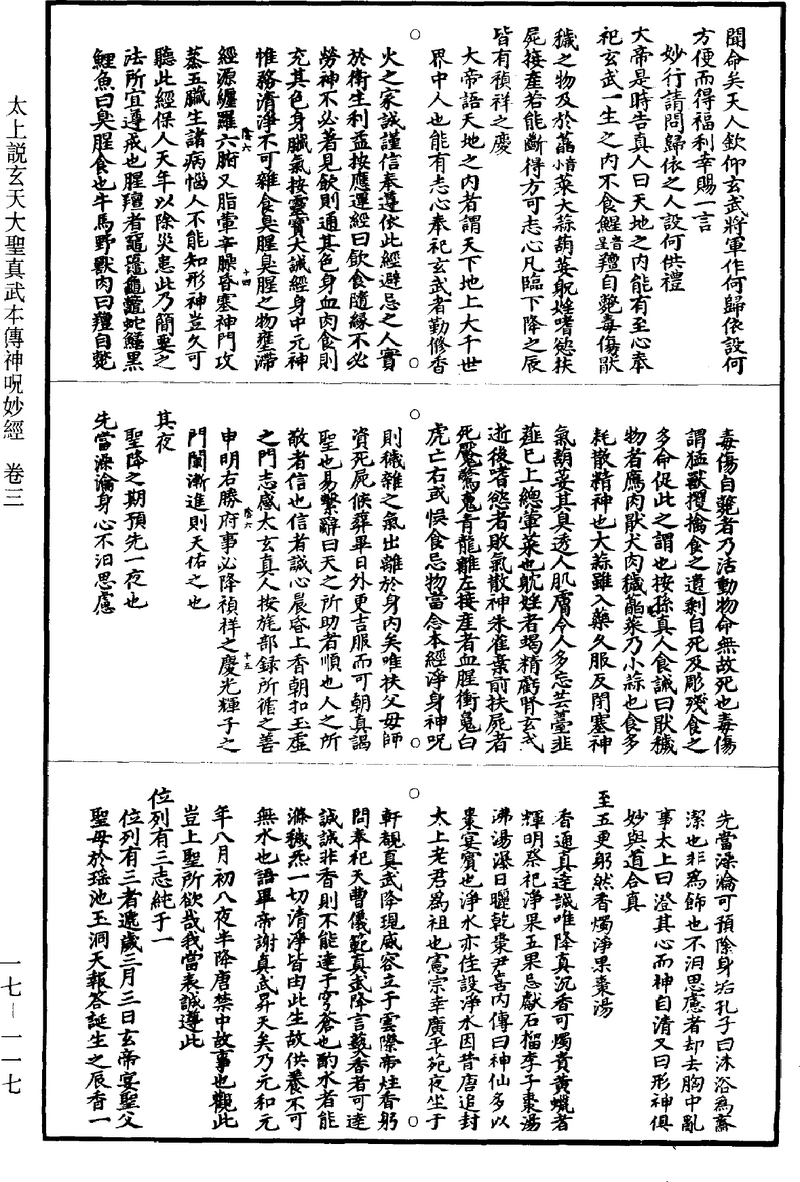 聞命矣天人欽仰玄武將軍作何歸依設何
方便而得福利幸賜一言
妙行請問歸依之人設何供禮
大帝是時告真人曰天地之内能有至心奉
祀玄武一生之内不食鯹音星羶自斃毒傷猒
穢之物及於䔉音萘大蒜葫荽躭婬嗜慾扶
屍接産若能斷得方可志心凡臨下降之辰
皆有禎祥之慶
大帝語天地之内者謂天下地上大千世
界中人也能有志心奉祀玄武者勤修香
火之家誠謹信奉遵依此經避忌之人實
於衛生利益按應運經曰飲食隨緣不必
勞神不必著見飲則通其色身血肉食則
充其色身臟氣按靈寶大誡經身中元神
惟務清淨不可雜食臭腥臭腥之物壅滯
經源纏羅六腑又脂葷辛臊昏塞神門攻
蒸五臟生諸病惱人不能知形神豈久可
聽此經保人天年以除災患此乃簡要之
法所宜遵戒也腥羶者黿鼉龜鼈蛇鱔黑
鯉魚曰臭腥食也牛馬野獸肉曰羶自斃
毒傷自斃者乃活動物命無故死也毒傷
謂猛獸攫擒食之遺剩自死及彫殘食之
多命促此之謂也按孫真人食誡曰猒穢
物者鴈肉獸犬肉穢䔉萘乃小蒜也食多
耗散精神也大蒜雖入藥久服反閉塞神
氣葫荽其臭透人肌膚令人多忘芸薹韭
薤已上總葷菜也躭婬者竭精虧腎玄武
逝後嗜慾者敗氣散神朱雀棄前扶屍者
死魘驚鬼青龍離左接産者血腥衝鬼白
虎亡右或悞食忌物當念本經淨身神呪
則穢雜之氣出離於身内矣唯扶父母師
資死屍候葬畢日外更吉服而可朝真謁
聖也易繫辭曰天之所助者順也人之所
敬者信也信者誠心晨昏上香朝扣玉虛
之門志感太玄真人按旄部録所脩之善
申明右勝府事必降禎祥之慶光輝子之
門闌漸進則天佑之也
其夜
聖降之期預先一夜也
先當澡瀹身心不汩思慮
先當澡瀹可預除身垢孔子曰沐浴為齋
潔也非為飾也不汩思慮者却去胸中亂
事太上曰澄其心而神自清又曰形神俱
妙與道合真
至五更躬然香燭淨果棗湯
香通真達誠唯降真沉香可燭貴黄蠟者
輝明祭祀淨果五果忌獻石榴李子棗湯
沸湯瀑日曬乾棗尹喜内傳曰神仙多以
棗宴賓也淨水亦佳設淨水因昔唐追封
太上老君為祖也憲宗幸廣平苑夜坐于
軒覩真武降現威容立于雲際帝炷香躬
問奉祀天曹儀範真武降言爇香者可達
誠誠非香則不能達于穹蒼也酌水者能
滌穢炁一切清淨皆由此生故供養不可
無水也語畢帝謝真武昇天矣乃元和元
年八月初八夜半降唐禁中故事也觀此
豈上聖所欲哉我當表誠遵此
位列有三志純于一
位列有三者遞歲三月三日玄帝宴聖父
聖母於瑶池玉洞天報答誕生之辰香一
陰六
十四
陰六
十五
太上説玄天大聖真武本傳神呪妙經　卷三
一七—一一七